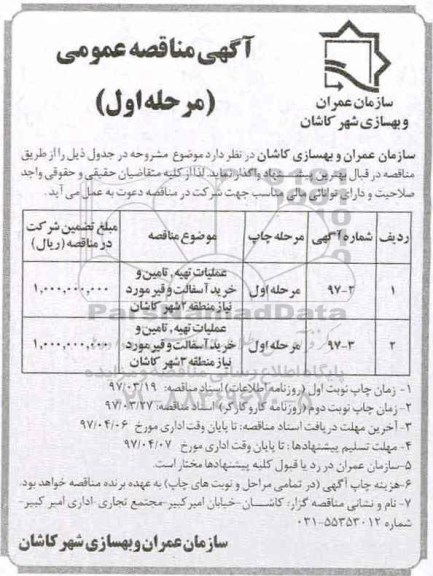 آگهی مناقصه عمومی
(مرحله اول)
سازمان عمران
و بهسازی شهر کاشان
سازمان عمران و بهسازی کاشان در نظر دارد موضوع مشروحه در جدول ذیل را از طریق
مناقصه در قبال بهترین پیشنهاد واگذار نماید. لذا از کلیه متقاضیان حقیقی و حقوقی واجد
صلاحیت و دارای توانائی مالی مناسب جهت شرکت در مناقصه دعوت به عمل می آید.
ردیف شماره آگهی مرحله چاپ موضوع مناقصه مبلغ تضمین شرکت در مناقصه (ریال)
۱ ۹۷-۲ مرحله اول عملیات تهیه، تامین و خرید آسفالت و قیر مورد نیاز منطقه ۲ شهر کاشان ۱,۰۰۰,۰۰۰,۰۰۰
۲ ۹۷-۳ مرحله اول عملیات تهیه، تامین و خرید آسفالت و قیر مورد نیاز منطقه ۳ شهر کاشان ۱,۰۰۰,۰۰۰,۰۰۰
۱- زمان چاپ نوبت اول (روزنامه اطلاعات) اسناد مناقصه: ۹۷/۰۳/۱۹
۲- زمان چاپ نوبت دوم (روزنامه کار و کارگر) اسناد مناقصه: ۹۷/۰۳/۲۷
۳- آخرین مهلت دریافت اسناد مناقصه: تا پایان وقت اداری مورخ ۹۷/۰۴/۰۶
۴- مهلت تسلیم پیشنهادها: تا پایان وقت اداری مورخ ۹۷/۰۴/۰۷
۵- سازمان عمران در رد یا قبول کلیه پیشنهادها مختار است.
۶- هزینه چاپ آگهی (در تمامی مراحل و نوبت های چاپ) به عهده برنده مناقصه خواهد بود.
۷- نام و نشانی مناقصه گزار: کاشان-خیابان امیرکبیر-مجتمع تجاری-اداری امیر کبیر-
شماره ۵۵۳۵۳۰۱۲-۰۳۱
سازمان عمران و بهسازی شهر کاشان